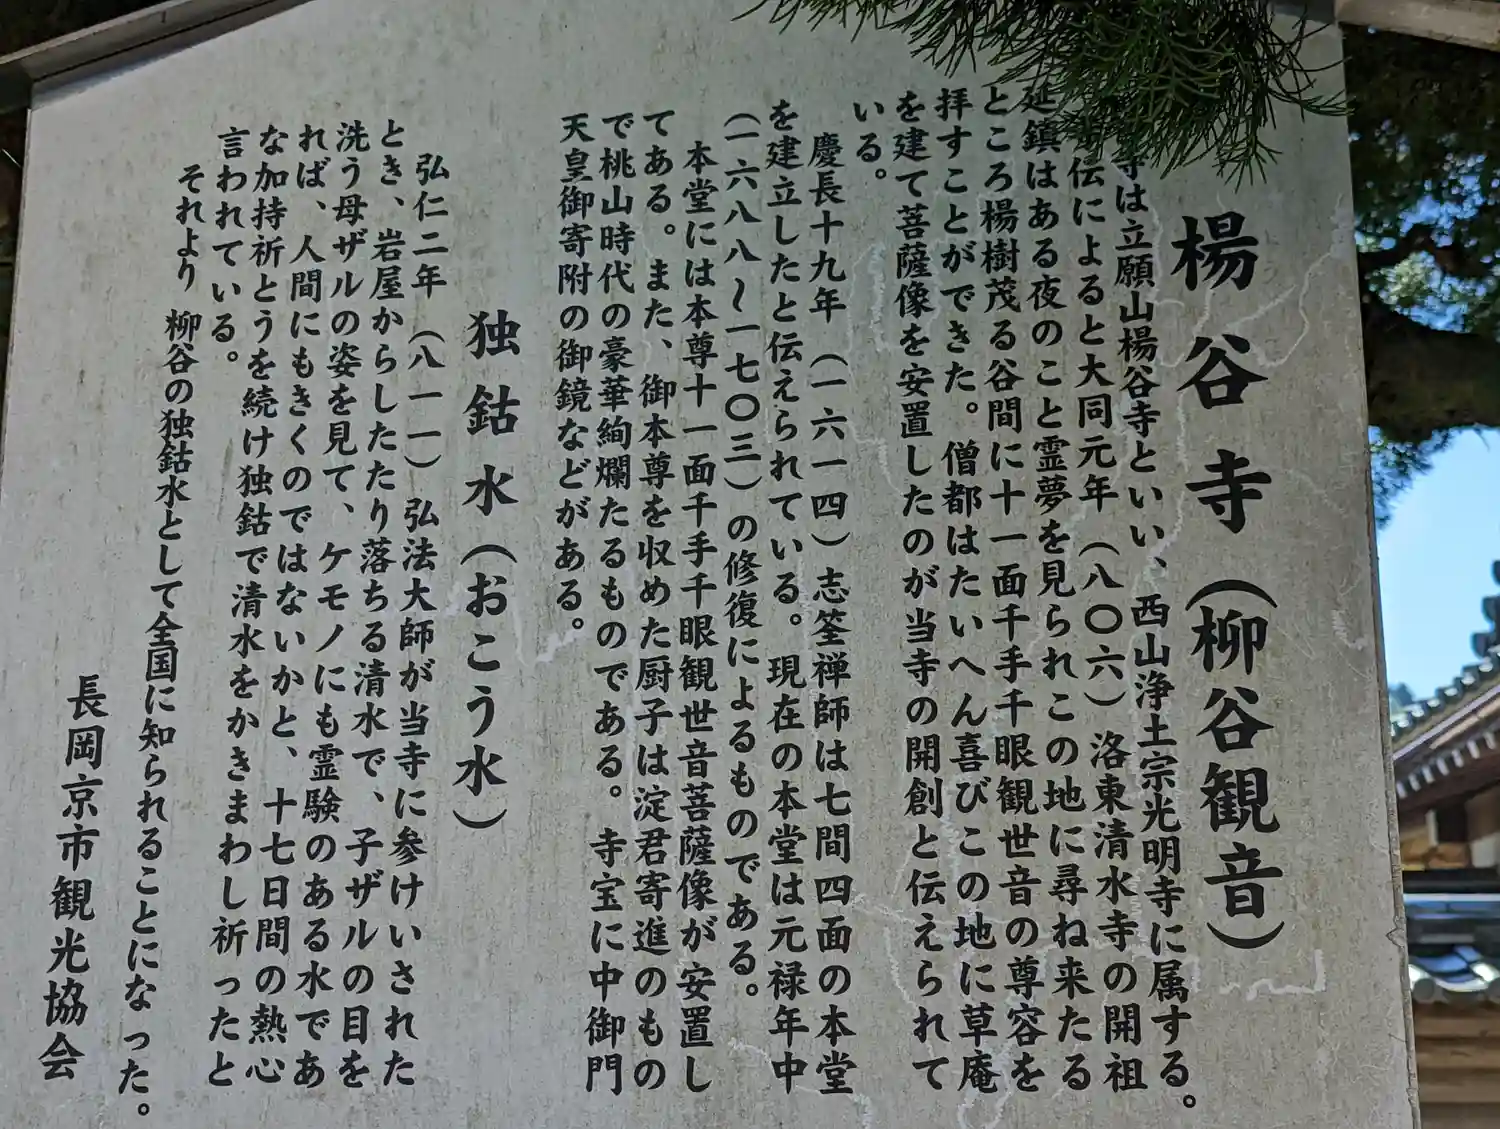 楊谷寺（柳谷観音）
寺は立願山楊谷寺といい、西山浄土宗光明寺に属する。
伝によると大同元年（八〇六）洛東清水寺の開祖
延鎮はある夜のこと霊夢を見られこの地に尋ね来たる
ところ楊樹茂る谷間に十一面千手千眼観世音の尊容を
拝すことができた。僧都はたいへん喜びこの地に草庵
を建て菩薩像を安置したのが当寺の開創と伝えられて
いる。
慶長十九年（一六一四）志筌禅師は七間四面の本堂
を建立したと伝えられている。現在の本堂は元禄年中
（一六八八～一七〇三）の修復によるものである。
本堂には本尊十一面千手千眼観世音菩薩像が安置し
てある。また、御本尊を収めた厨子は淀君寄進のもの
で桃山時代の豪華絢爛たるものである。寺宝に中御門
天皇御寄附の御鏡などがある。
独鈷水（おこう水）
弘仁二年（八一一）弘法大師が当寺に参けいされた
とき、岩屋からしたたり落ちる清水で、子ザルの目を
洗う母ザルの姿を見て、ケモノにも霊験のある水であ
れば、人間にもきくのではないかと、十七日間の熱心
な加持祈とうを続け独鈷で清水をかきまわし祈ったと
言われている。
それより 柳谷の独鈷水として全国に知られることになった。
長岡京市観光協会